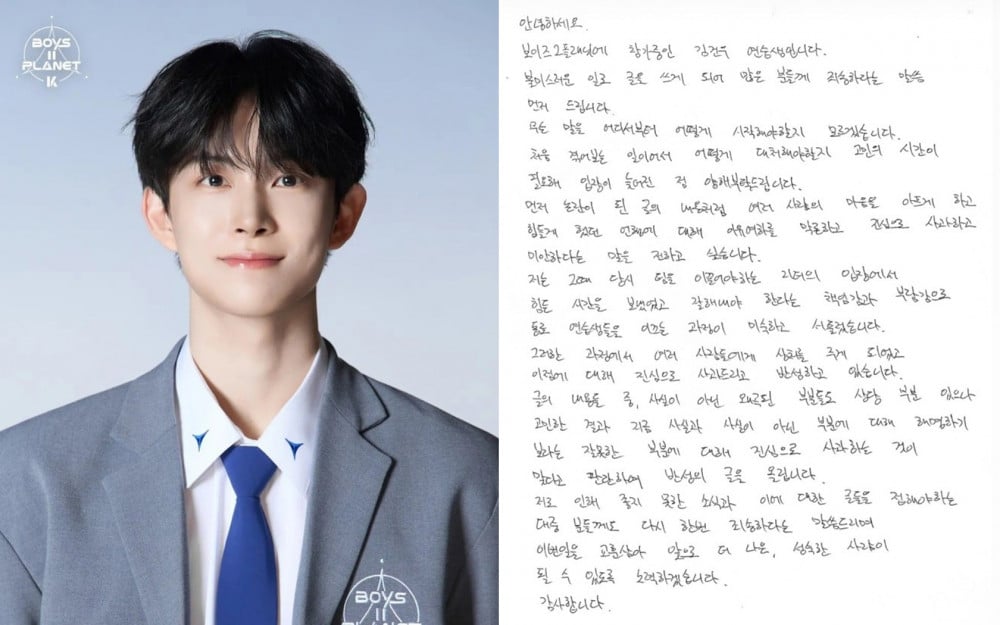 BOYS
II
PLANET
K
BOYS
II
PLANET
안녕하세요.
보이즈2플래닛에 참가중인 김건우 연습생입니다.
불미스러운 일로 글을 쓰게 되어 많은 분들께 죄송하다는 말씀
먼저 드립니다.
무슨 말을 어디서부터 어떻게 시작해야할지 모르겠습니다.
처음 겪어보는 일이어서 어떻게 대처해야할지 고민의 시간이
필요해 입장이 늦어진 점 양해부탁드립니다.
먼저 논란이 된 글의 내용처럼 여러 사람의 마음을 아프게 하고
힘들게 했던 언행에 대해 이유여하를 막론하고 진심으로 사과하고
미안하다는 말을 전하고 싶습니다.
저는 그때 당시 팀을 이끌어야하는 리더의 입장에서
힘든 시간을 보냈었고 잘해내야 한다는 책임감과 부담감으로
동료 연습생들을 이끄는 과정이 미숙하고 서툴렀습니다.
그러한 과정에서 여러 사람들에게 상처를 주게 되었고
이점에 대해 진심으로 사과드리고 반성하고 있습니다.
글의 내용들 중, 사실이 아닌 왜곡된 부분들도 상당 부분 있으나
고민한 결과 지금 사실과 사실이 아닌 부분에 대해 해명하기
보다는 잘못한 부분에 대해 진심으로 사과하는 것이
맞다고 판단하여 반성의 글을 올립니다.
저로 인해 좋지 못한 소식과 이에 대한 글들을 접해야하는
대중 분들께도 다시 한번 죄송하다는 말씀드리며
이번일을 교훈삼아 앞으로 더 나은, 성숙한 사람이
될 수 있도록 노력하겠습니다.
감사합니다.